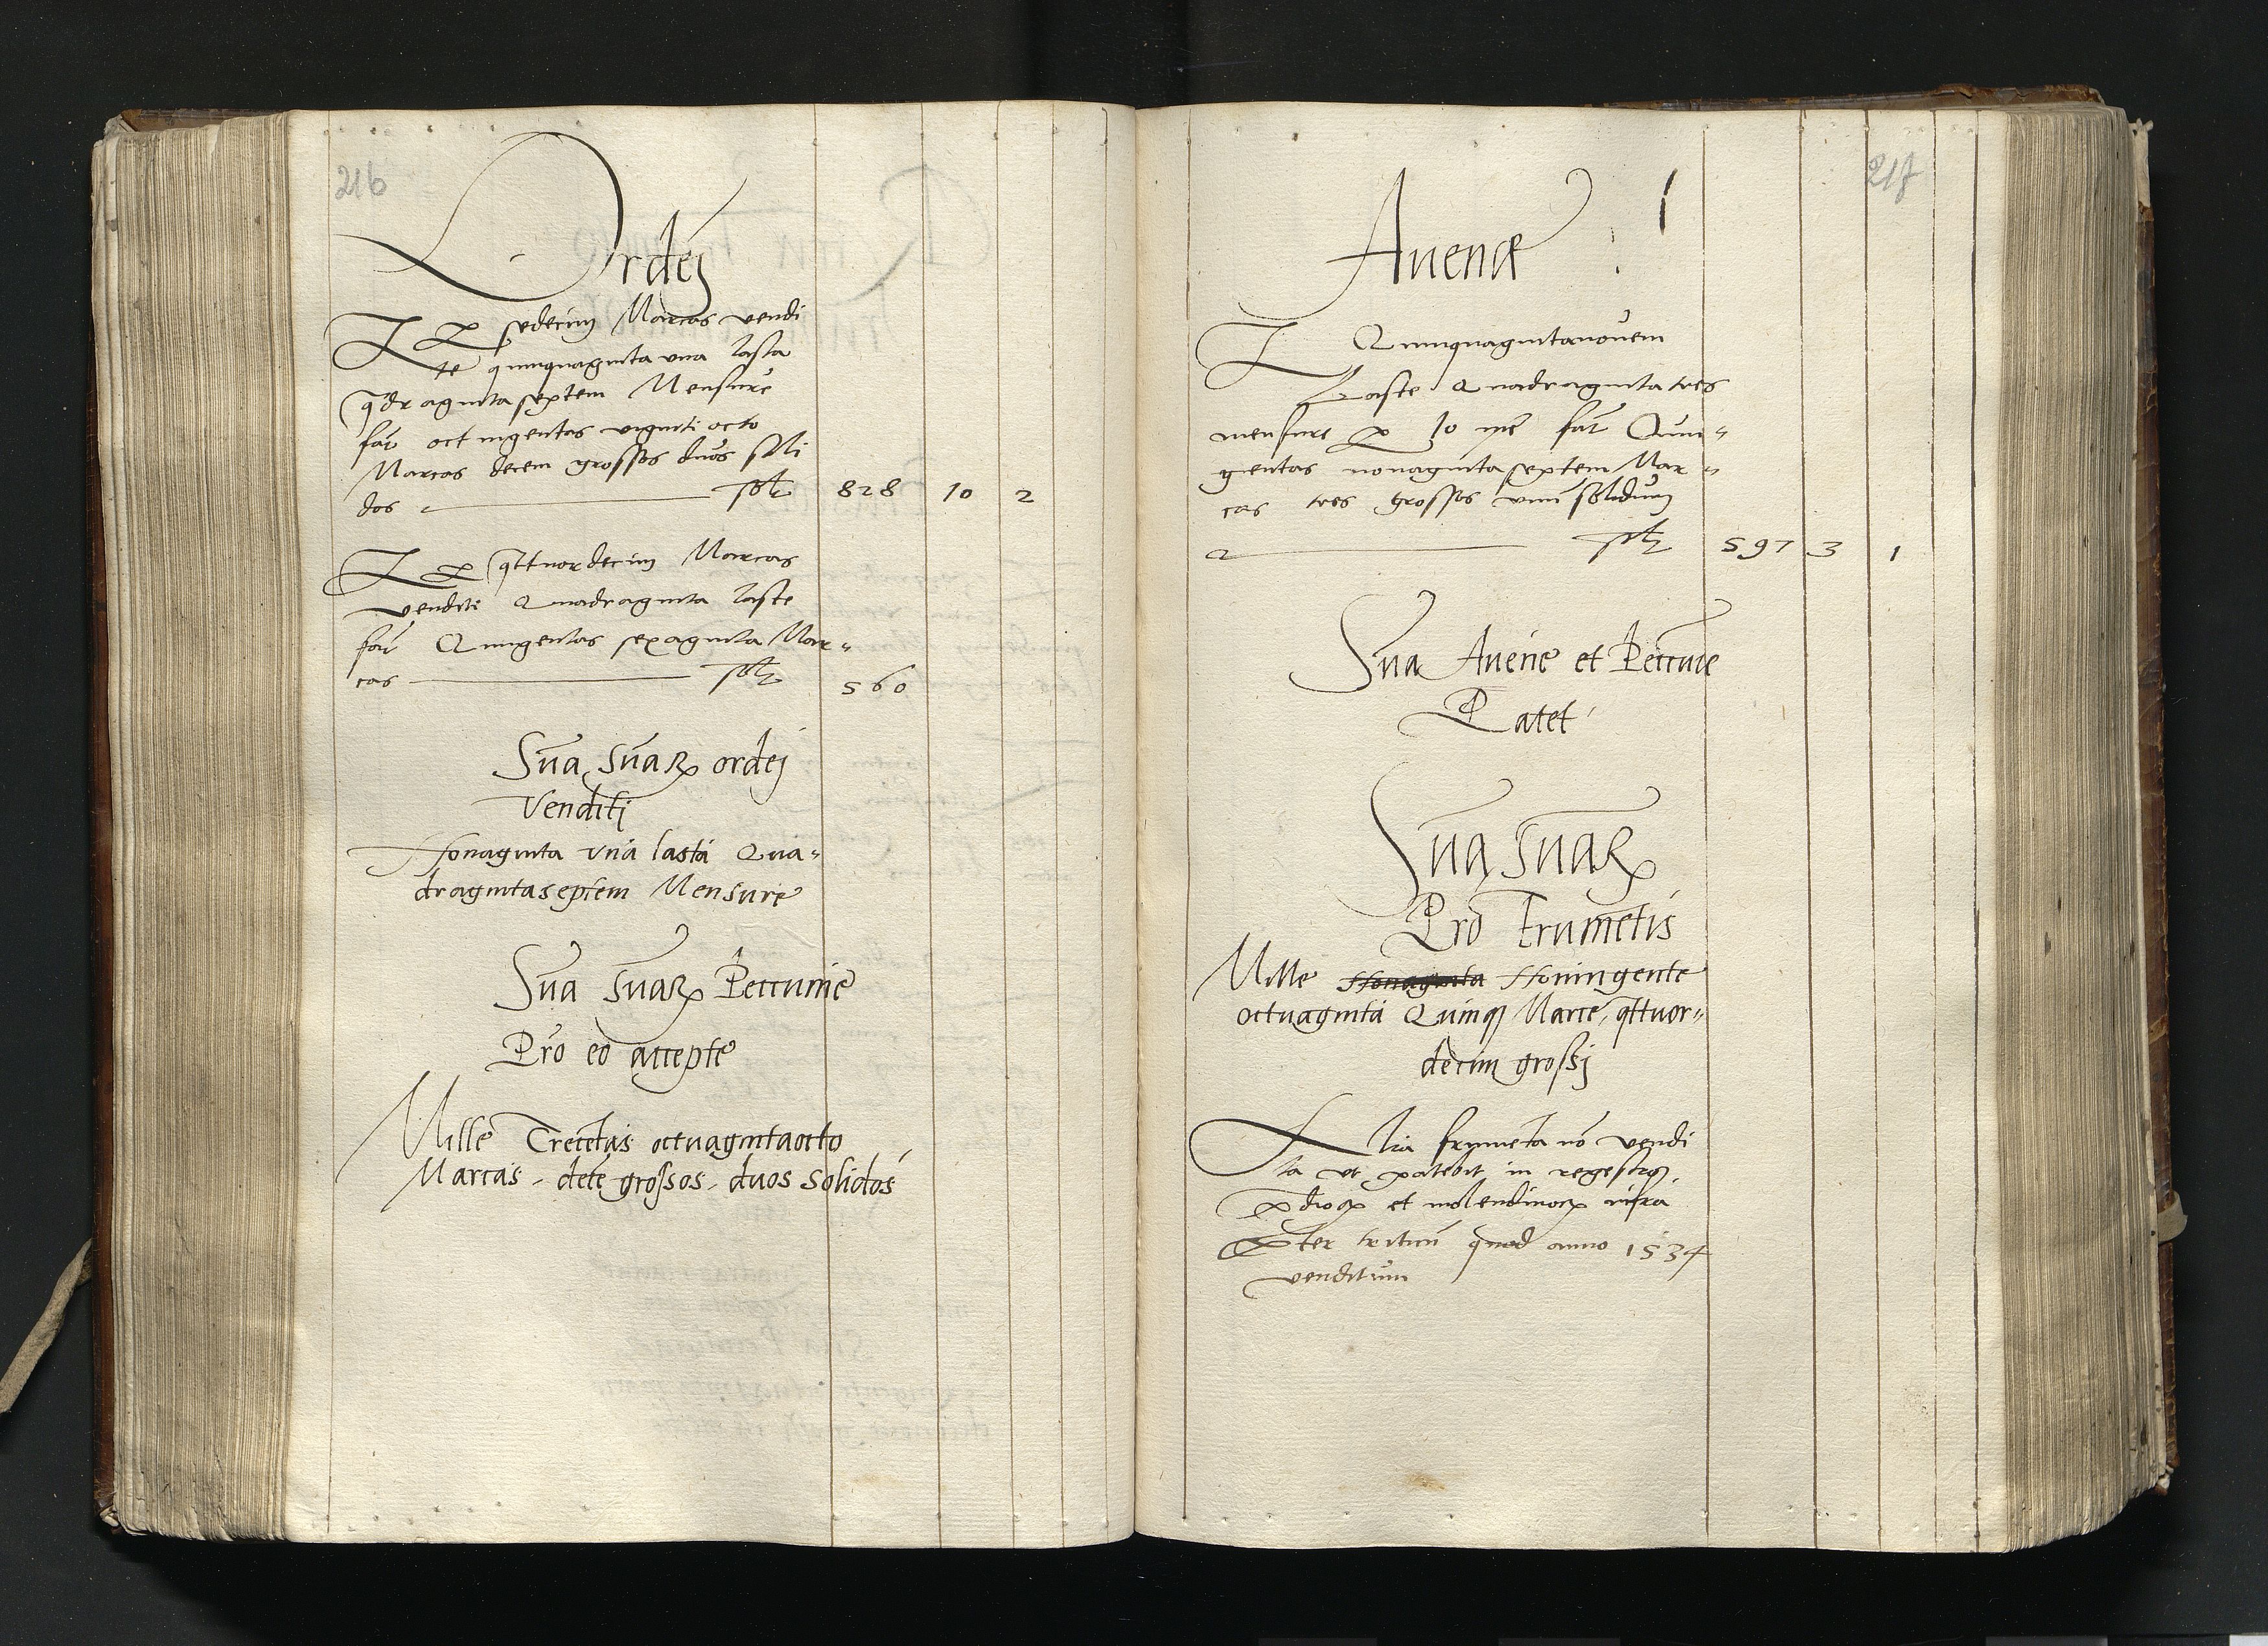 216
Ordej
It p sedecim Marcas vendi
te quinquaginta una lasta
qdraginta septem Mensure
fac̃ octingentas viginti octo
Marcas decem grossos duos soli
dos 828 10 2
It p qttuordecim Marcas
vendite Quadraginta laste
fac̃ Quingentas sexaginta Mar„
cas 560
Sũa Sũaꝝ ordej
Venditj
Nonaginta una lasta Qua„
dragintaseptem Mensure
Sũa Sũaꝝ Peccunie
Pro eo accepte
Mille Trecẽtas octuagintaocto
Marcas. decẽ grossos. duos solidos
217
Auenæ
It Quinquagintanouem
Laste Quadraginta tres
mensure p 10 mr̃ fac̃ Quin„
gentas nonaginta septem Mar„
cas tres grossos unũ solidum
597 3 1
Sũa Auene et Peccunie
Patet
Sũa Sũaꝝ
Pro Frumẽtis
Mille Nonaginta Noningente
octuaginta Quinqꝫ Marce, qttuor„
decim grossj
Alia frumẽta nõ vendi
ta ut patebit in regestro
pdioꝝ et molendinoꝝ infra
Pter triticũ quod anno 1534
venditum